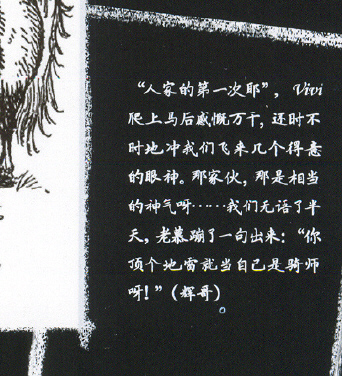 “人家的第一次耶”，Vivi
爬上马后感慨万千，还时不
时地冲我们飞来几个得意
的眼神。那家伙，那是相当
的神气呀……我们无语了半
天，老慕蹦了一句出来：“你
顶个地雷就当自己是骑师
呀！”（辉哥）